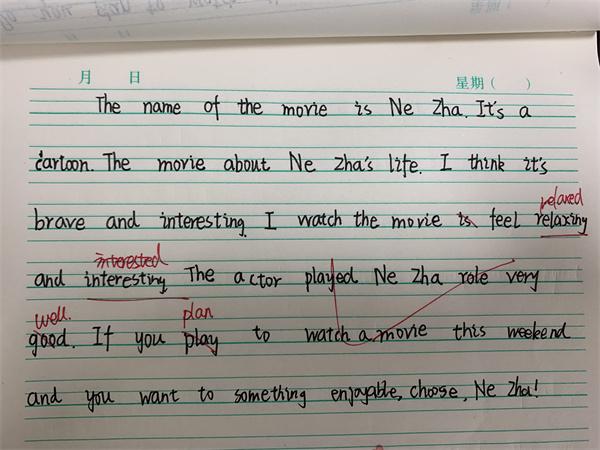 月 日 星期( )
The name of the movie is Ne Zha. It's a
cartoon. The movie about Ne Zha's life. I think it's
relaxed
brave and interesting. I watch the movie is feel relaxing
interested
and interesting The actor played Ne Zha role very
well. plan
good. If you play to watch a movie this weekend
and you want to something enjoyable, choose, Ne Zha!